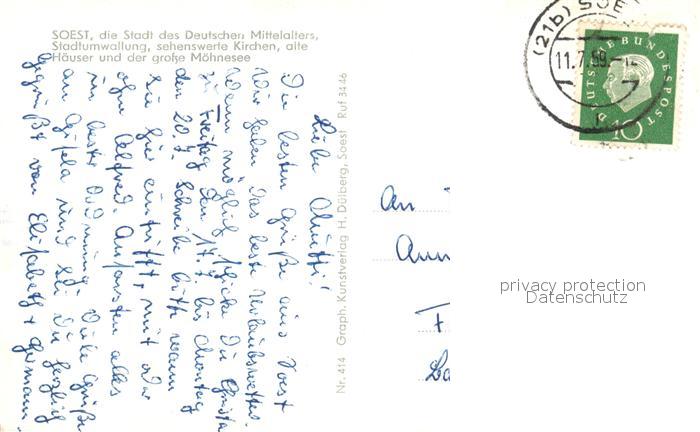 SOEST, die Stadt des Deutschen Mittelalters,
Stadtumwallung, sehenswerte Kirchen, alte
Häuser und der große Möhnesee
Liebe Mutti!
Die besten Grüße aus Soest
Wir haben das beste Urlaubswetter.
Wenn möglich schicke Du Christa
Freitag den 17.7. bis Montag
den 20.7. Schreibe bitte wann
Sie hier eintrifft, mit oder
ohne Alfred. Ansonsten alles
in bester Ordnung. Viele Grüße
an Gisela und sei Du herzlich
gegrüßt von Elisabeth + Hermann.
Nr. 414 Graph. Kunstverlag H. Dülberg, Soest Ruf 3446
(21b) SOE
11.7.59.-12
DEUTSCHE BUNDESPOST
10
An
privacy protection
Datenschutz